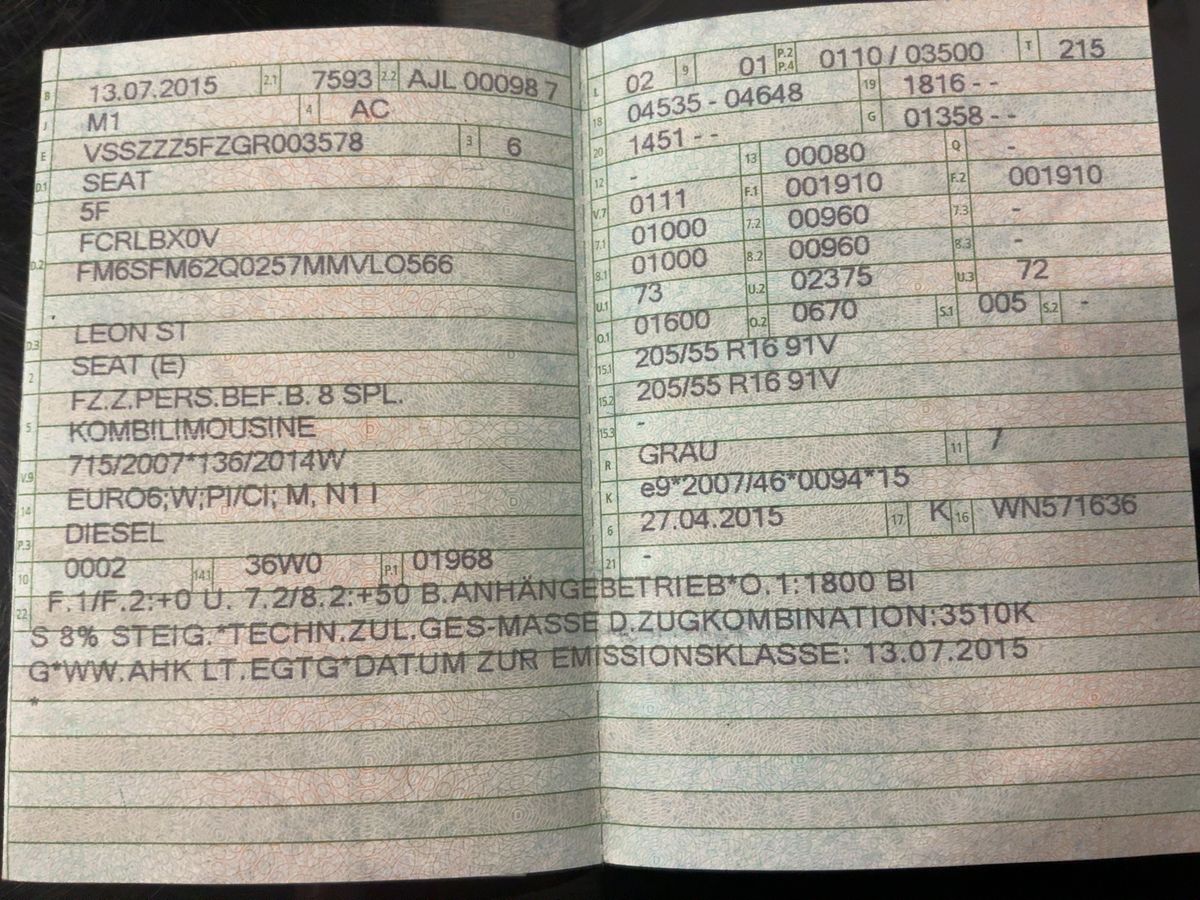 B 13.07.2015 2.1 7593 2.2 AJL 00098 7
J M1 4 AC
E VSSZZZ5FZGR003578 3 6
D.1 SEAT
5F
D.2 FCRLBX0V
FM6SFM62Q0257MMVLO566
D.3 LEON ST
2 SEAT (E)
5 FZ.Z.PERS.BEF.B. 8 SPL.
KOMBILIMOUSINE
V.9 715/2007*136/2014W
14 EURO6;W;PI/CI; M, N1 I
P.3 DIESEL
10 0002 14.1 36W0 P.1 01968
L 02 9 01 P.2 P.4 0110 / 03500 T 215
18 04535 - 04648 19 1816 - -
20 1451 - - G 01358 - -
12 - 13 00080 Q -
V.7 0111 F.1 001910 F.2 001910
7.1 01000 7.2 00960 7.3 -
8.1 01000 8.2 00960 8.3 -
U.1 73 U.2 02375 U.3 72
O.1 01600 O.2 0670 S.1 005 S.2 -
15.1 205/55 R16 91V
15.2 205/55 R16 91V
15.3 -
R GRAU 11 7
K e9*2007/46*0094*15
6 27.04.2015 17 K 16 WN571636
21 -
22 F.1/F.2:+0 U. 7.2/8.2:+50 B.ANHÄNGEBETRIEB*O.1:1800 BI
S 8% STEIG.*TECHN.ZUL.GES-MASSE D.ZUGKOMBINATION:3510K
G*WW.AHK LT.EGTG*DATUM ZUR EMISSIONSKLASSE: 13.07.2015
*